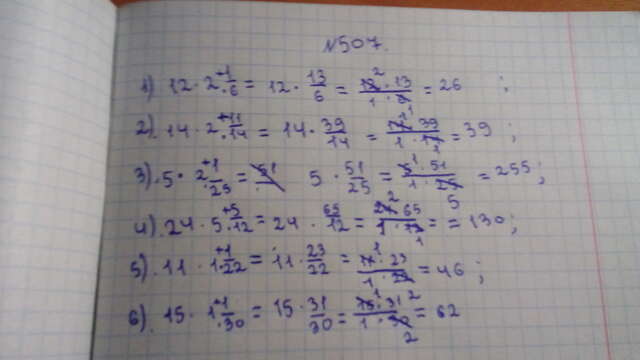 №507.
1) 12 · 2 1/6 = 12 · 13/6 = 12 · 13 / 1 · 6 = 26 ;
2) 14 · 2 11/14 = 14 · 39/14 = 14 · 39 / 1 · 14 = 39 ;
3) 5 · 2 1/25 = 51 5 · 51/25 = 5 · 51 / 1 · 25 = 255 ;
4) 24 · 5 5/12 = 24 · 65/12 = 24 · 65 / 1 · 12 = = 130 ;
5) 11 · 1 1/22 = 11 · 23/22 = 11 · 23 / 1 · 22 = 46 ;
6) 15 · 1 1/30 = 15 · 31/30 = 15 · 31 / 1 · 30 = 62